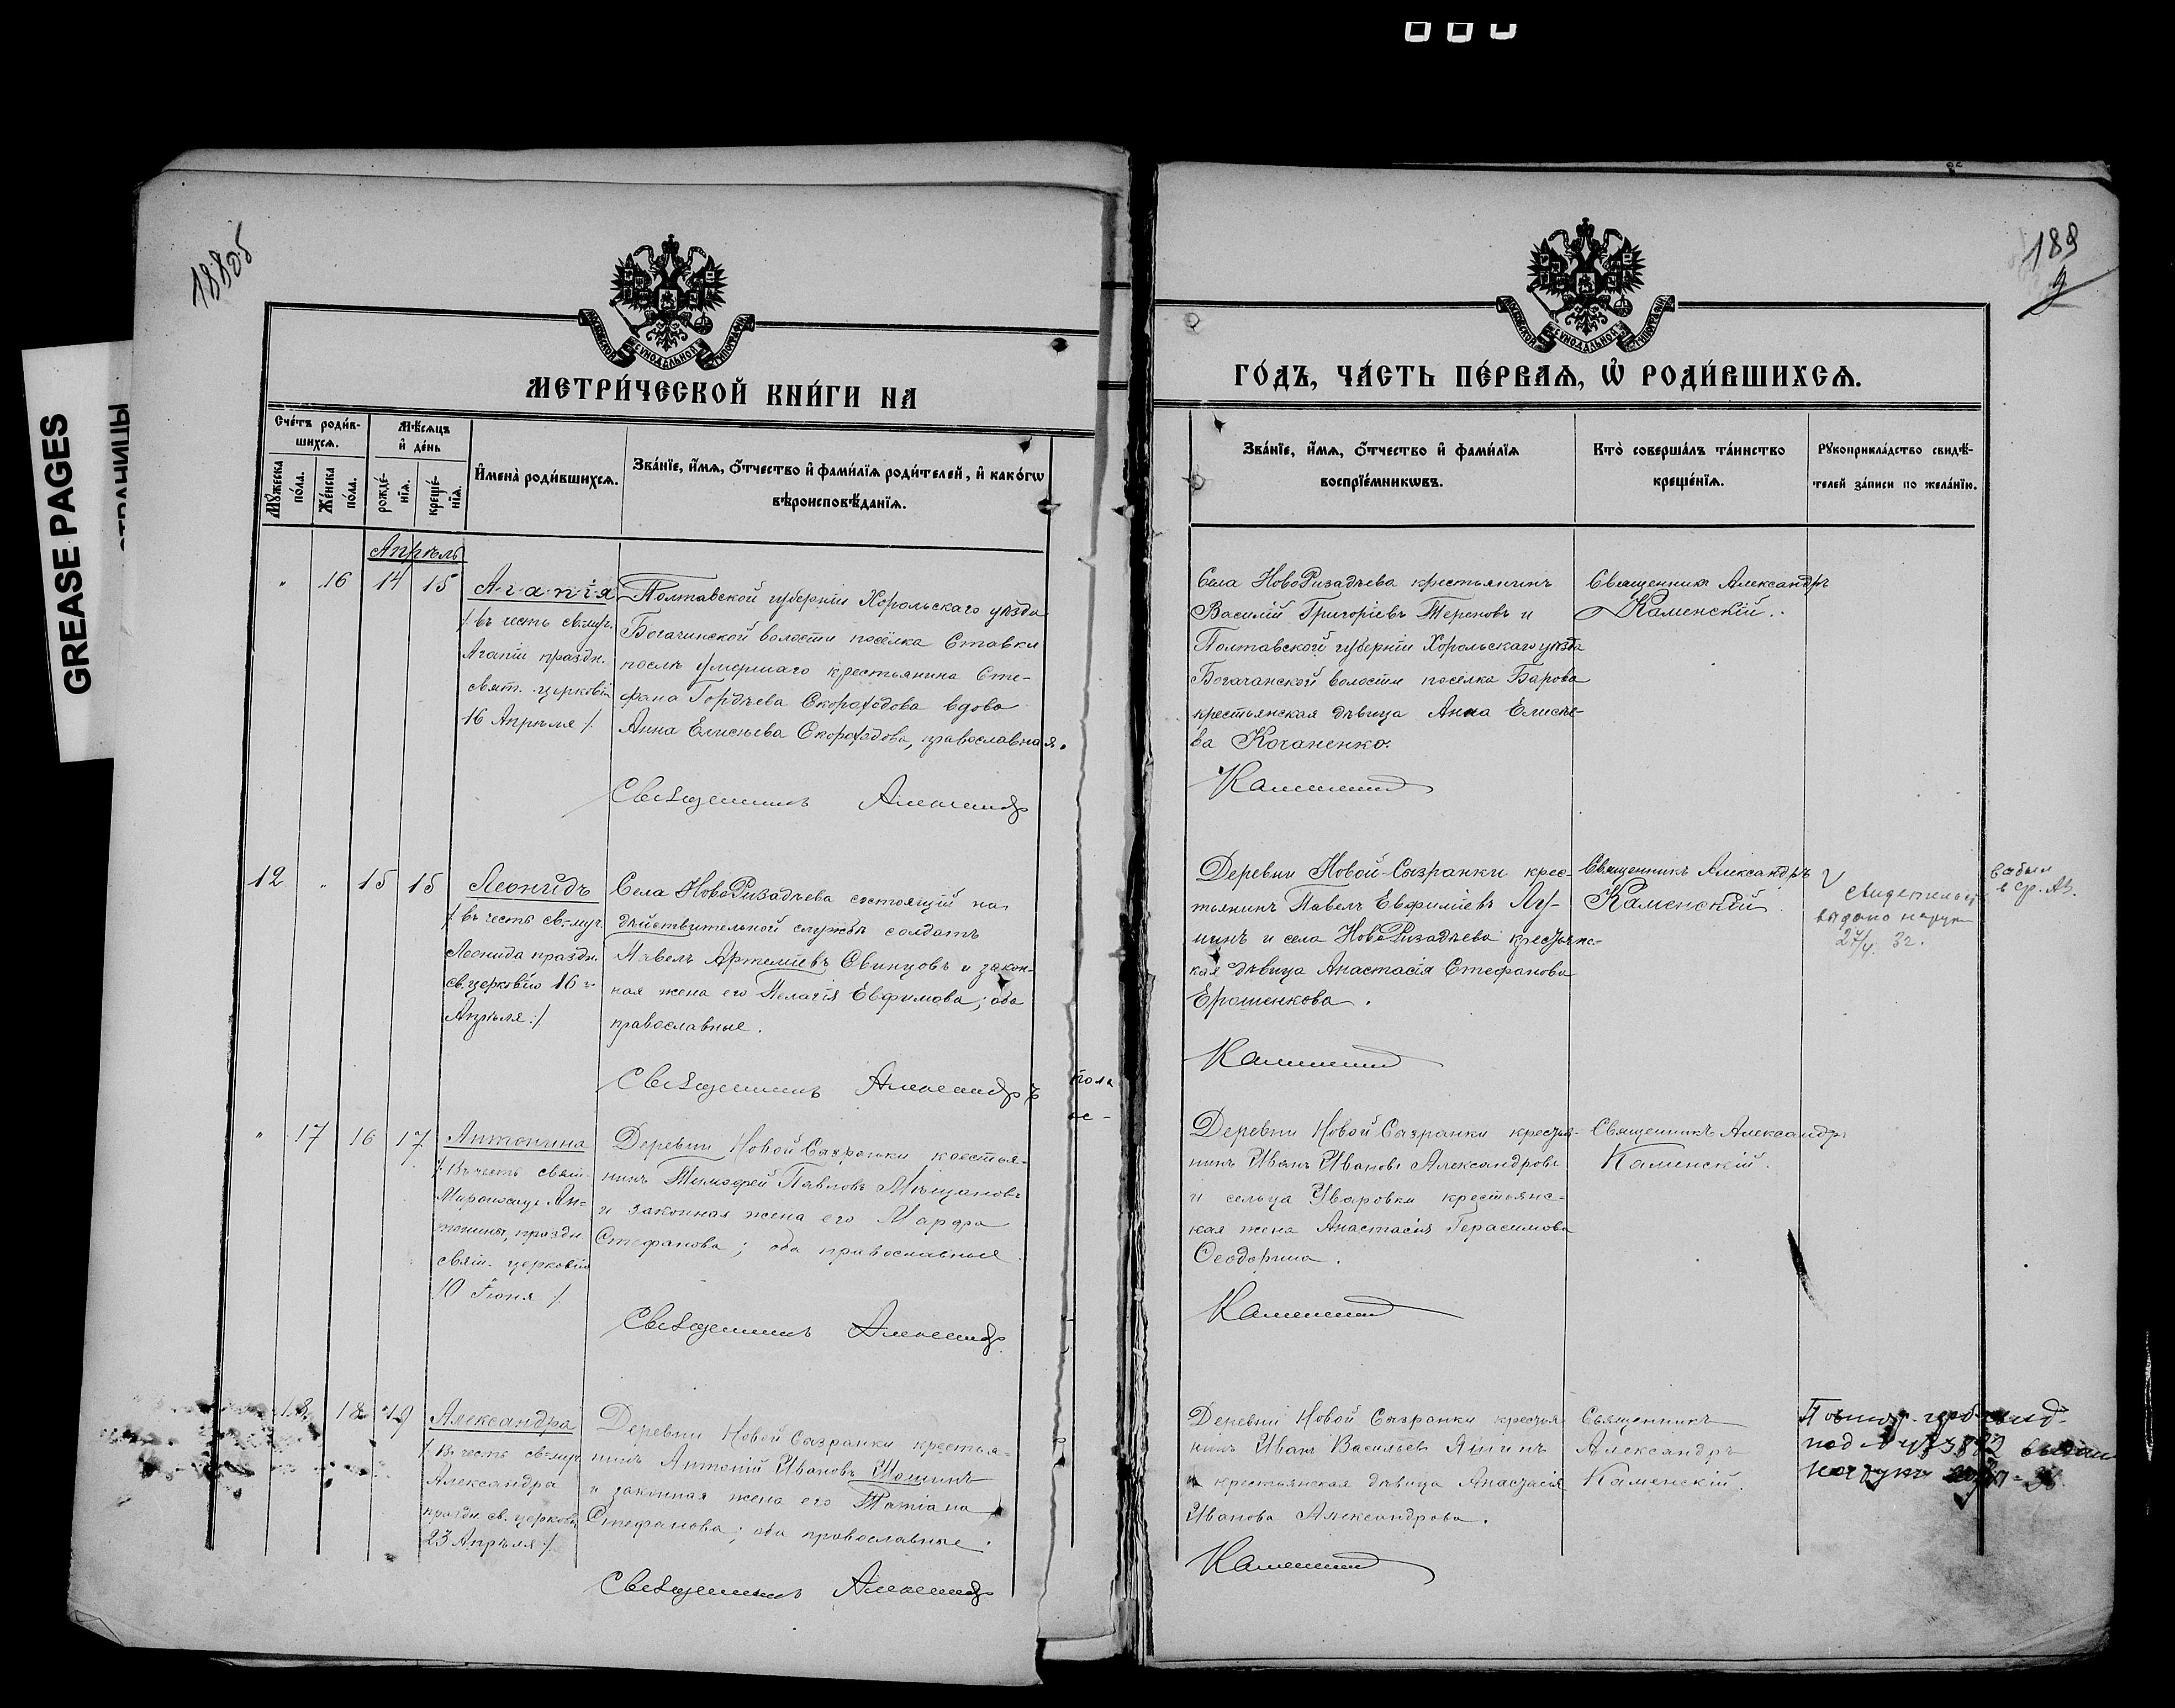 188об
189
9
GREASE PAGES
СТРАНИЦЫ
МОСКОВСКОЙ СѴНОДАЛЬНОЙ ТИПОГРАФІИ
МЕТРИ́ЧЕСКОЙ КНИ́ГИ НА
Сче́тъ роди́в-
шихсѧ.
Мѣ́сѧцъ
и҆ де́нь
Мꙋ́жеска
по́ла.
Же́нска
по́ла.
рожде́-
нїѧ.
креще́-
нїѧ.
И҆мена̀ роди́вшихсѧ.
Зва́нїе, и҆́мѧ, ѻ҆́тчество и҆ фами́лїѧ роди́телей, и҆ како́гѡ
вѣроисповѣ́данїѧ.
Апрѣль
" 16 14 15
Агапія
/ въ честь св.-муч.
Агапіи праздн.
свят. церковію
16 Апрѣля /.
Полтавской губерніи Хорольскаго уѣзда
Богачинской волости посёлка Ставки
послѣ умершаго крестьянина Сте-
фана Гордѣева Скороходова вдова
Анна Елисѣева Скороходова, православная.
Священникъ Александръ
12 " 15 15
Леонидъ
/ въ честь св.-муч.
Леонида праздн.
св. церковію 16-
Апрѣля. /.
Села НовоРизадѣева состоящій на
дѣйствительной службѣ солдатъ
Павелъ Артеміевъ Свинцовъ и закон-
ная жена его Пелагія Евфимова; оба
православные.
Священникъ Александръ
" 17 16 17
Антонина
/. Въ честь свят.
Мироносиц. Ан-
тонины, праздн.
свят. церковію
10 Іюня /.
Деревни Новой Сызранки крестья-
нинъ Тимофей Павловъ Мѣщановъ
и законная жена его Марфа
Стефанова; оба православные.
Священникъ Александръ
18 18 19
Александра
/ Въ честь св-муч
Александра
праздн. св. церковію
23 Апрѣля /.
Деревни Новой Сызранки крестья-
нинъ Антоній Ивановъ Шошинъ
и законная жена его Татіана
Стефанова; оба православные.
Священникъ Александръ
пола
МОСКОВСКОЙ СѴНОДАЛЬНОЙ ТИПОГРАФІИ
ГО́ДЪ, ЧА́СТЬ ПЕ́РВАѦ, Ѡ҆ РОДИ́ВШИХСѦ.
Зва́нїе, и҆́мѧ, ѻ҆́тчество и҆ фами́лїѧ
воспрїе́мникѡвъ.
Кто̀ соверша́лъ та́инство
креще́нїѧ.
Рꙋкоприкла́дство свидѣ́-
телей за́писи по жела́нїю.
Села НовоРизадѣева крестьянинъ
Василій Григоріевъ Терековъ и
Полтавской губерніи Хорольскаго уѣзда
Богачанской волости посёлка Барова
крестьянская дѣвица Анна Елисѣе-
ва Коганенко.
Каменскій
Священникъ Александръ
Каменскій.
Деревни Новой-Сызранки крес-
тьянинъ Павелъ Евфиміевъ Лу-
нинъ и села НовоРизадѣева крестьянс-
кая дѣвица Анастасія Стефанова
Ерошенкова.
Каменскій
Священникъ Александръ
Каменскій
выдано на руки
27/V. 32.
Деревни Новой Сызранки крестья-
нинъ Иванъ Ивановъ Александровъ
и сельца Уваровки крестьянс-
кая жена Анастасія Герасимова
Ѳеодорина.
Каменскій
Священникъ Александръ
Каменскій.
Деревни Новой Сызранки крестья-
нинъ Иванъ Васильевъ Яшинъ
и крестьянская дѣвица Анастасія
Иванова Александрова.
Каменскій
Священникъ
Александръ
Каменскій.